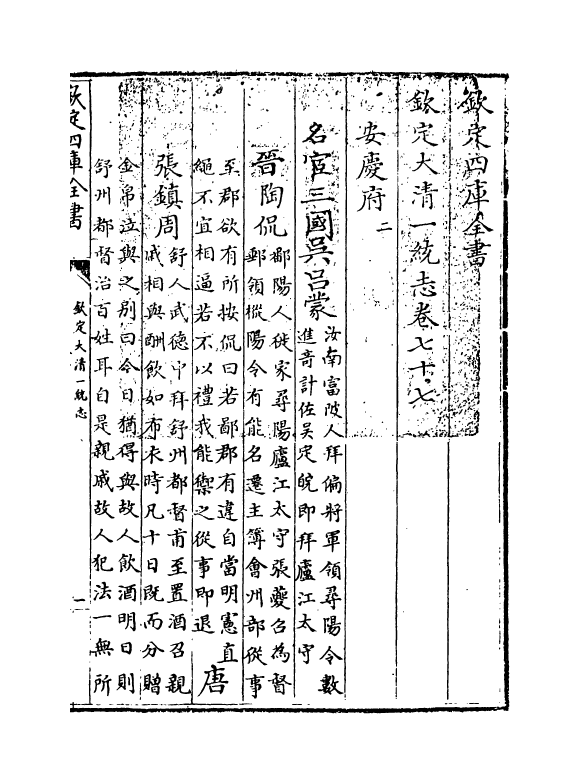 欽定四庫全書
欽定大清一統志卷七十七
安慶府二
名宦三國吳呂蒙汝南富陂人拜偏將軍領尋陽令數
進竒計佐吳定皖即拜廬江太守
晉陶侃鄱陽人徙家尋陽廬江太守張夔召為督
郵領樅陽令有能名遷主簿會州部從事
至郡欲有所按侃曰若鄙郡有違自當明憲直
繩不宜相逼若不以禮我能禦之從事即退唐
張鎮周舒人武德中拜舒州都督甫至置酒召親
戚相與酣飲如布衣時凡十日既而分贈
金帛泣與之别曰今日猶得與故人飲酒明日則
舒州都督治百姓耳自是親戚故人犯法一無所
欽定四庫全書
欽定大清一統志
一